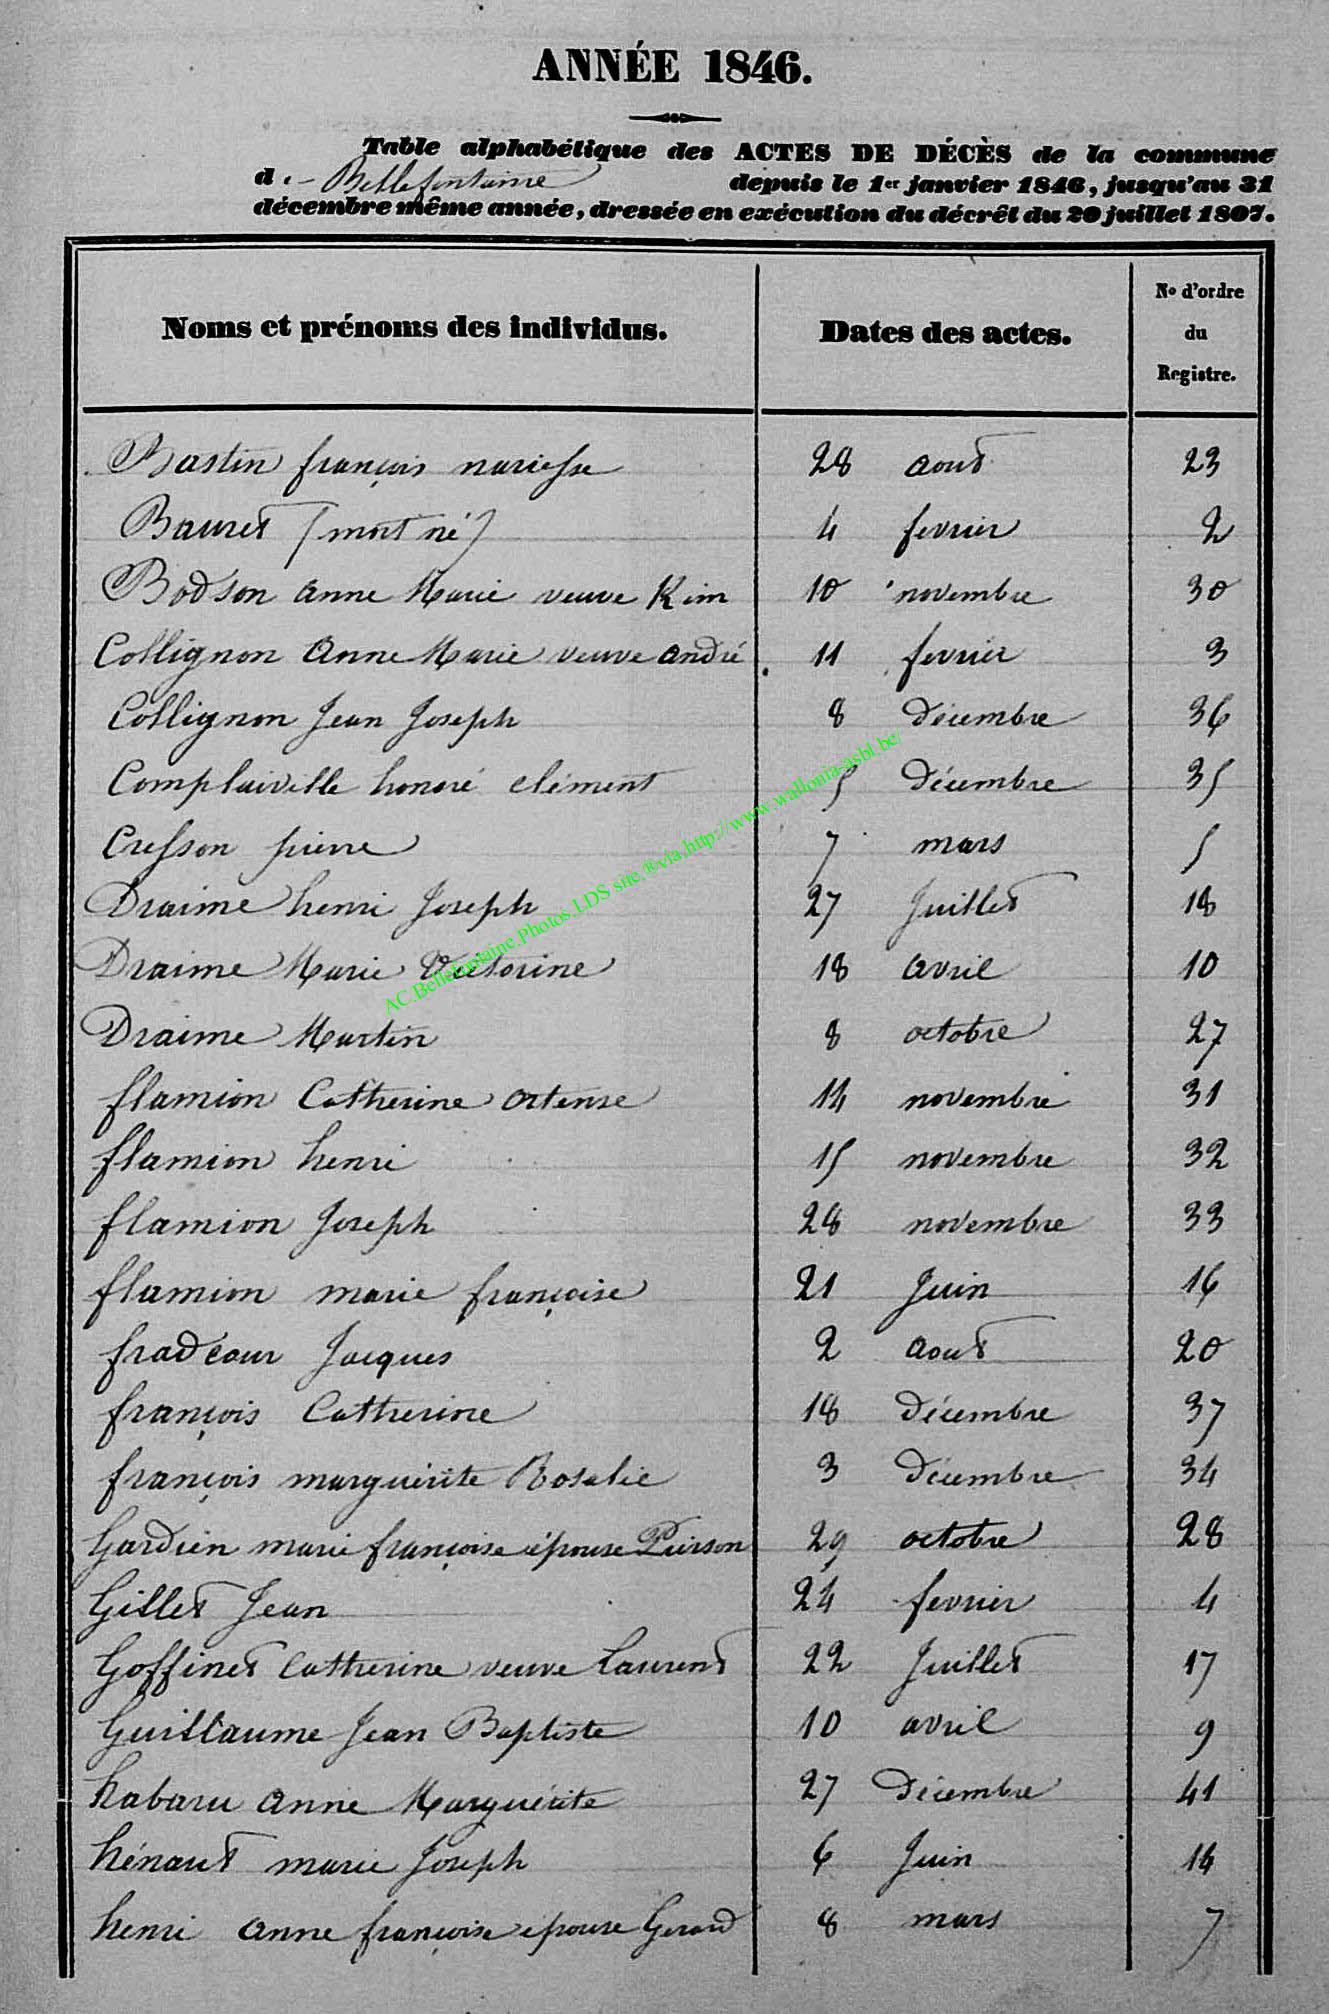 ANNÉE 1846.
Table alphabétique des ACTES DE DÉCÈS de la commune
d. Bellefontaine depuis le 1er janvier 1846, jusqu'au 31
décembre même année, dressée en exécution du décrêt du 20 juillet 1807.
Noms et prénoms des individus. Dates des actes. No d'ordre du Registre.
Bastin françois 28 aout 23
Bauret (mort né) 4 fevrier 2
Bodson anne Marie veuve Kim 10 novembre 30
Collignon Anne Marie veuve andré 11 fevrier 3
Collignon Jean Joseph 8 décembre 36
Complaiville honoré clément 5 décembre 35
Cresson pierre 7 mars 5
Draime henri Joseph 27 Juillet 18
Draime Marie Victorine 18 avril 10
Draime Martin 8 octobre 27
flamion Catherine ortense 14 novembre 31
flamion henri 15 novembre 32
flamion Joseph 28 novembre 33
flamion marie françoise 21 Juin 16
fradcour Jacques 2 aout 20
françois Catherine 18 décembre 37
françois marguérite Rosalie 3 décembre 34
Gardien marie françoise épouse Pierson 29 octobre 28
Gillet Jean 24 fevrier 4
Goffinet Catherine veuve Laurent 22 Juillet 17
Guillaume Jean Baptiste 10 avril 9
habaru anne Marguérite 27 décembre 41
hénaut marie Joseph 6 Juin 14
henri anne françoise épouse Gerard 8 mars 7
AC.Bellefontaine.Photos.LDS site,®via,http://www.wallonia-asbl.be/